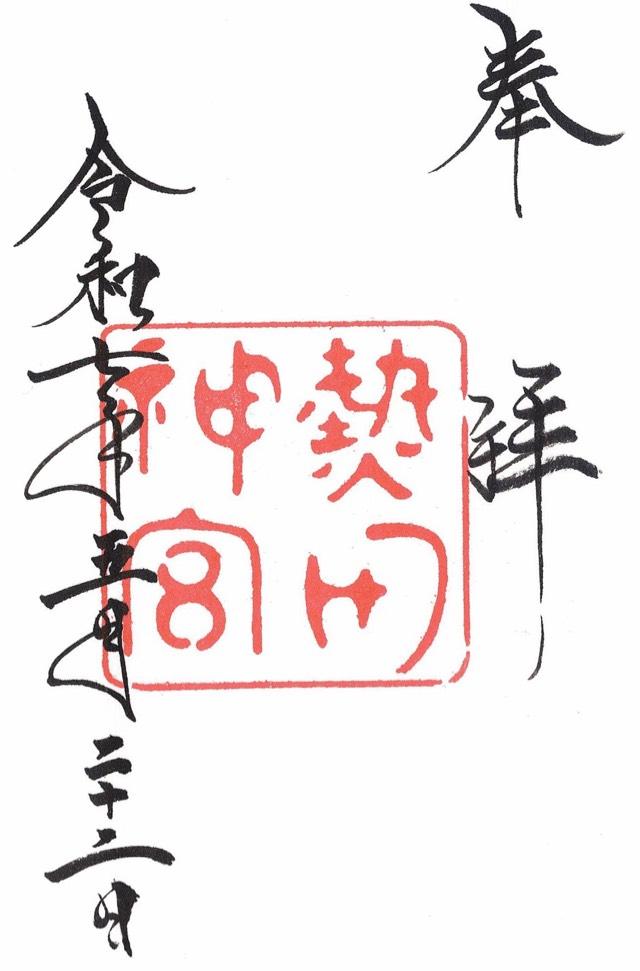 奉拝
熱田
神宮
令和七年五月二十二日